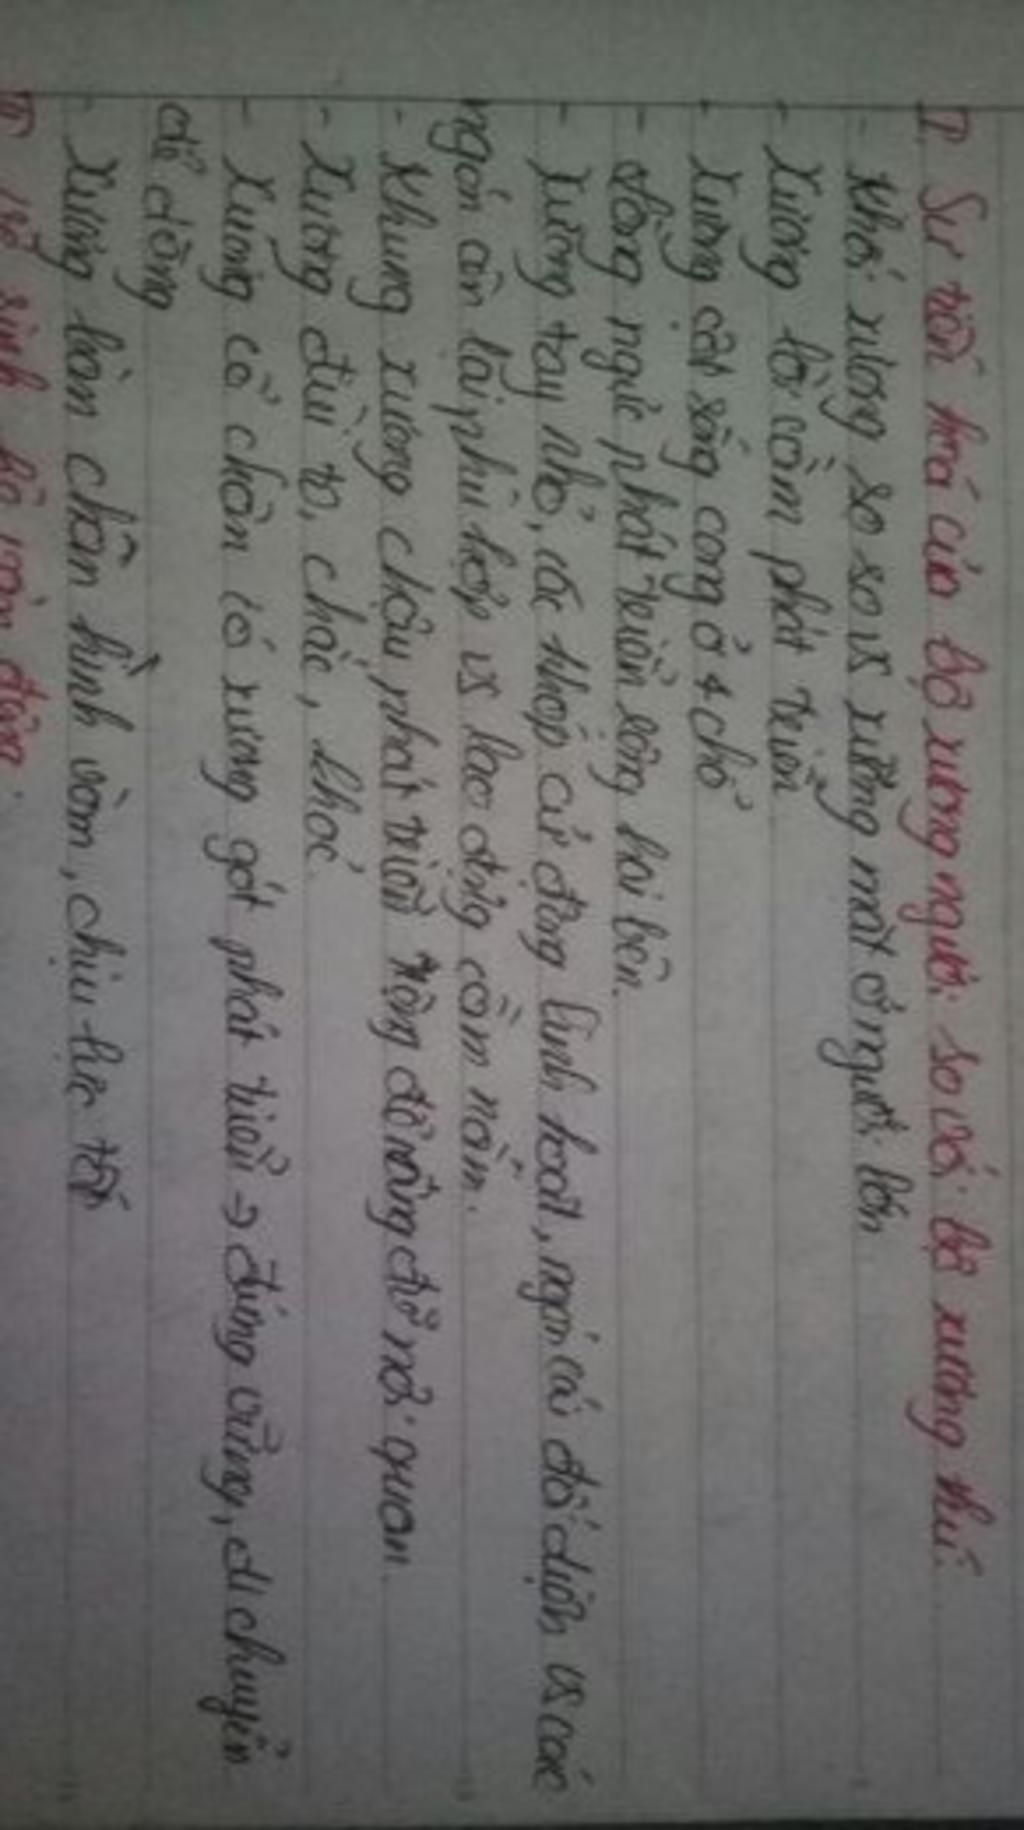 I. Sự tiến hoá của bộ xương người so với bộ xương thú.
- Khối xương sọ so vs xương mặt ở người lớn
- Xương lồi cằm phát triển
- Xương cột sống cong ở 4 chỗ
- Lồng ngực phát triển sang hai bên.
- Xương tay nhỏ, các khớp cử động linh hoạt, ngón cái đối diện vs các
ngón còn lại phù hợp vs lao động cầm nắm.
- Khung xương chậu phát triển rộng để nâng đỡ nội quan.
- Xương đùi to, chắc, khoẻ.
- Xương cổ chân có xương gót phát triển → đứng vững, di chuyển
dễ dàng
- Xương bàn chân hình vòm, chịu lực tốt
vệ sinh hệ vận động